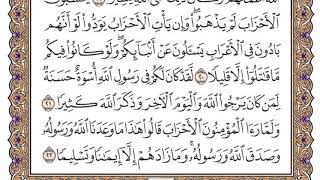 يَحْسَبُونَ
ٱلْأَحْزَابَ لَمْ يَذْهَبُوا۟ ۖ وَإِن يَأْتِ ٱلْأَحْزَابُ يَوَدُّوا۟ لَوْ أَنَّهُم
بَادُونَ فِى ٱلْأَعْرَابِ يَسْـَٔلُونَ عَنْ أَنۢبَآئِكُمْ ۖ وَلَوْ كَانُوا۟ فِيكُم
مَّا قَـٰتَلُوٓا۟ إِلَّا قَلِيلًا ٢٠ لَّقَدْ كَانَ لَكُمْ فِى رَسُولِ ٱللَّهِ أُسْوَةٌ حَسَنَةٌ
لِّمَن كَانَ يَرْجُوا۟ ٱللَّهَ وَٱلْيَوْمَ ٱلْـَٔاخِرَ وَذَكَرَ ٱللَّهَ كَثِيرًا ٢١
وَلَمَّا رَءَا ٱلْمُؤْمِنُونَ ٱلْأَحْزَابَ قَالُوا۟ هَـٰذَا مَا وَعَدَنَا ٱللَّهُ وَرَسُولُهُۥ
وَصَدَقَ ٱللَّهُ وَرَسُولُهُۥ ۚ وَمَا زَادَهُمْ إِلَّآ إِيمَـٰنًا وَتَسْلِيمًا ٢٢